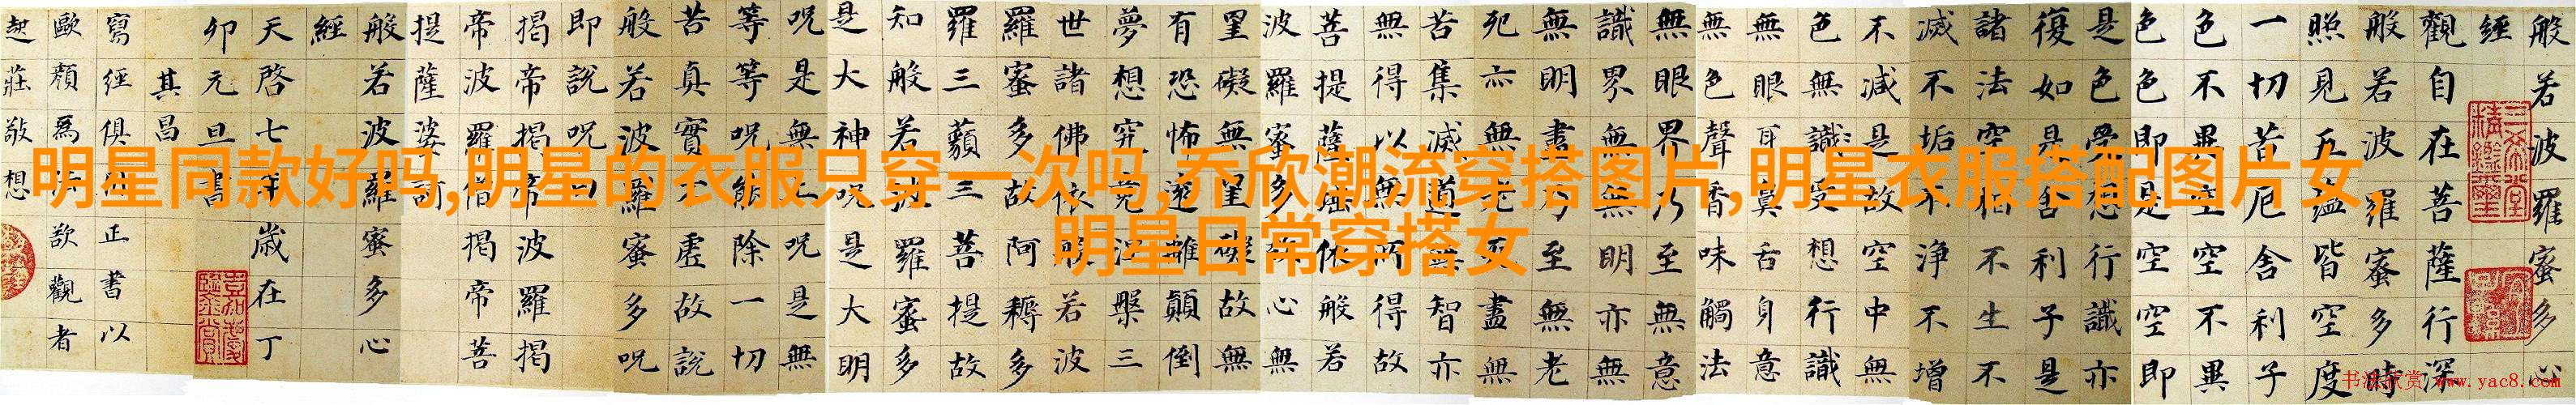 明星同款好吗,明星的衣服只穿一次吗,乔欣潮流穿搭图片,明星衣服搭配图片女,
明星日常穿搭女
般若波羅蜜多心
經
觀自在菩薩行深
般若波羅蜜多時
照見五蘊皆空度
一切苦厄舍利子
色不異空空不異
色色即是空空即
是色受想行識亦
復如是舍利子是
諸法空相不生不
滅不垢不淨不增
不減是故空中無
色無識受想行識
無眼耳鼻舌身意
無色聲香味觸法
無眼界乃至無意
識界無無明亦無
無明盡乃至無老
死亦無老死盡無
苦集滅道無智亦
無得以無所得故
菩提薩埵依般若
波羅蜜多故心無
罣礙無罣礙故無
有恐怖遠離顛倒
夢想究竟涅槃三
世諸佛依般若波
羅蜜多故阿耨多
羅三藐三菩提故
知般若波羅蜜多
是大神呪是大明
呪是無上呪是無
等等呪能除一切
苦真實不虛故說
般若波羅蜜多呪
即說呪曰
揭帝揭帝波羅揭
帝波羅僧揭帝菩
提薩婆訶
般若波羅蜜多心
經
天啓七年歲在丁
卯元旦書
其昌
寫經俱正書以
歐顏為欲觀者
起莊敬想
书法欣赏 www.yac8.com